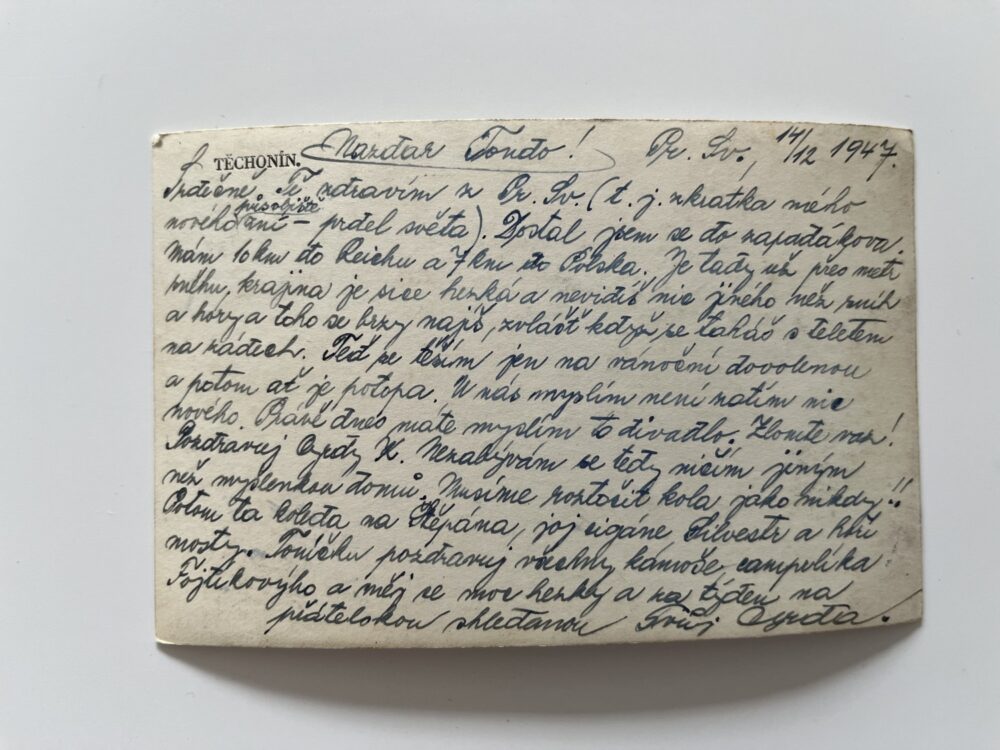 TĚCHONÍN.
Nazdar Tondo! Pr. Sv., 14/12 1947.
Srdečně Tě zdravím z Pr. Sv. (t. j. zkratka mého
působiště
nového – prdel světa). Dostal jsem se do zapadákova.
Mám 10 km do Reichu a 7 km do Polska. Je tady už přes metr
sněhu, krajina je sice hezká a nevidíš nic jiného než sníh
a hory a toho se brzy najíš, zvlášť když se taháš s teletem
na zádech. Teď se těším jen na vánoční dovolenou
a potom ať je potopa. U nás myslím není zatím nic
nového. Právě dnes máte myslím to divadlo. Zlomte vaz!
Pozdravuj Cyrdy K. Nezabývám se teď ničím jiným
než myšlenkou domů. Musíme roztočit kola jako nikdy!!
Potom ta koleda na Štěpána, joj cigáne Silvestr a hoří
mosty. Toníčku pozdravuj všechny kamoše, campelíka
Fojtíkovýho a měj se moc hezky a za týden na
přátelskou shledanou Tvůj Cyrda.